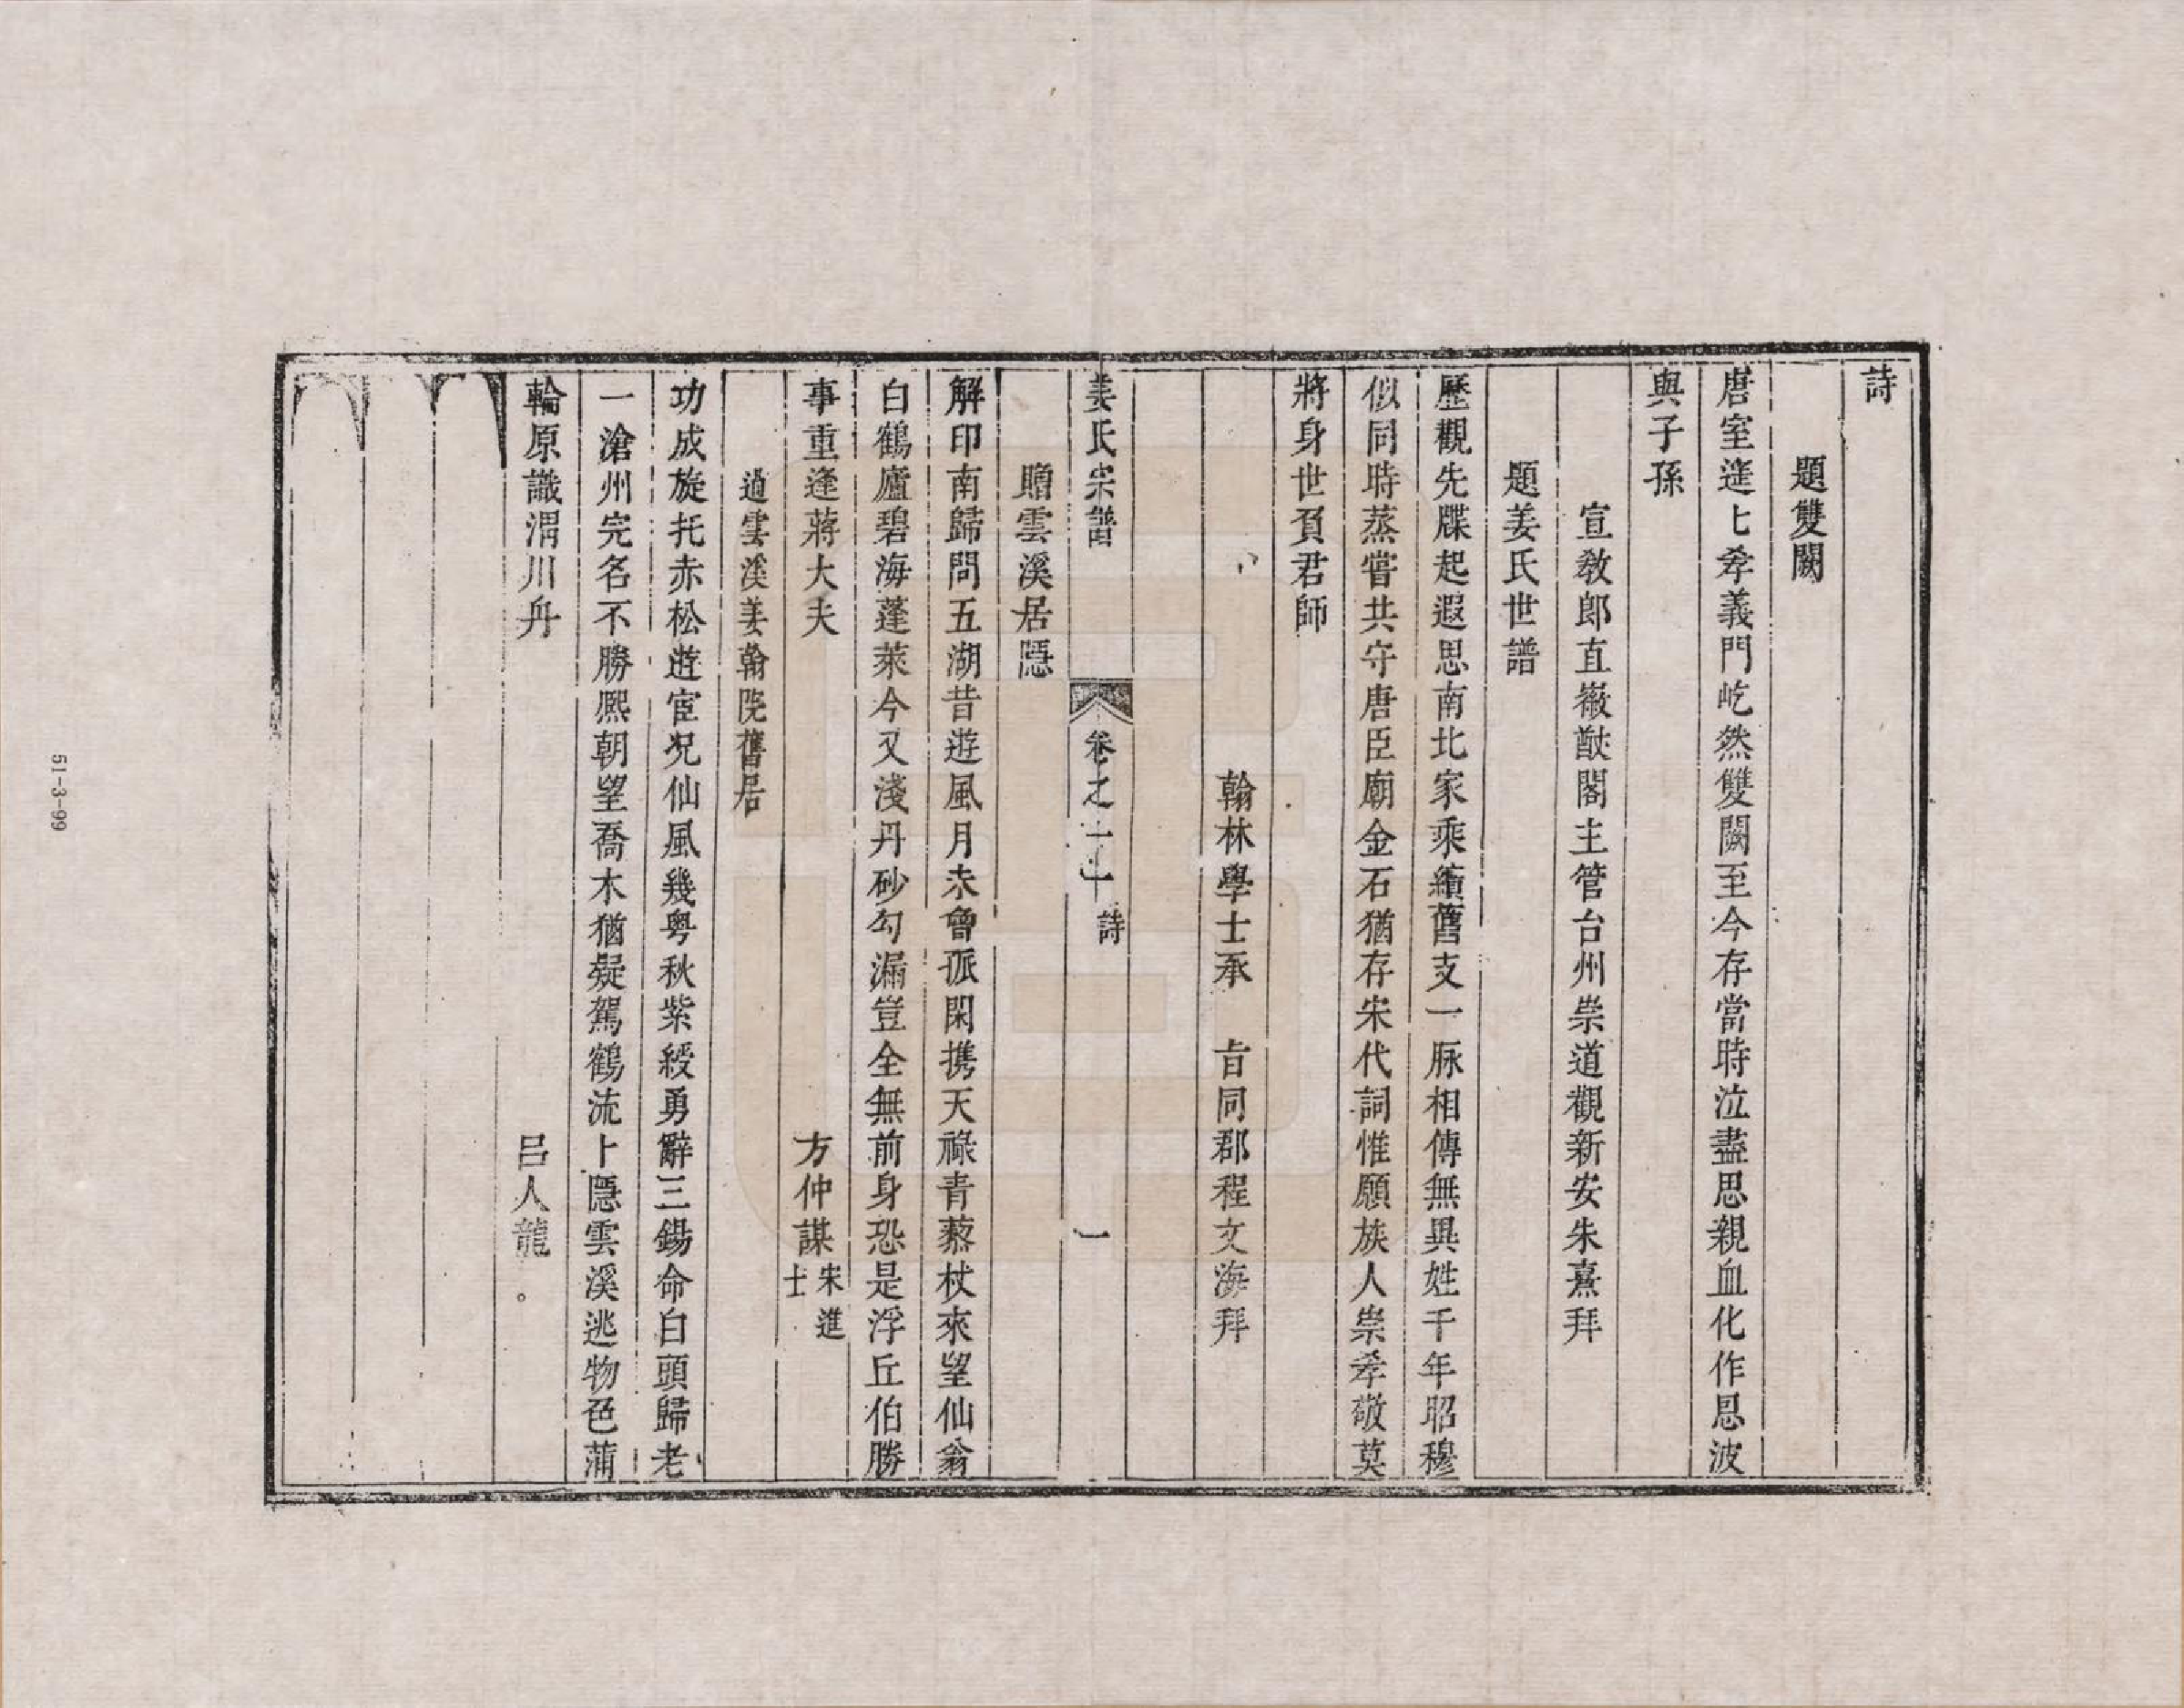 詩
題雙闕
唐室旌七孝義門屹然雙闕至今存當時泣盡思親血化作恩波
與子孫
宣教郎直徽猷閣主管台州崇道觀新安朱熹拜
題姜氏世譜
歷觀先牒起遐思南北家乘續舊支一脉相傳無異姓千年昭穆
似同時蒸嘗共守唐臣廟金石猶存宋代詞惟願族人崇孝敬莫
將身世負君師
翰林學士承 旨同郡程文海拜
姜氏宗譜 卷之 詩 一
贈雲溪居隱
解印南歸問五湖昔遊風月未曾孤閑携天祿青藜杖來望仙翁
白鶴廬碧海蓬萊今又淺丹砂勾漏豈全無前身恐是浮丘伯勝
事重逢蔣大夫
方仲謀宋進士
過雲溪姜翰院舊居
功成旋托赤松遊宦況仙風幾粤秋紫綬勇辭三錫命白頭歸老
一滄州完名不勝熙朝望喬木猶疑駕鶴流卜隱雲溪逃物色蒲
輪原識渭川舟
呂人龍
51-3-99